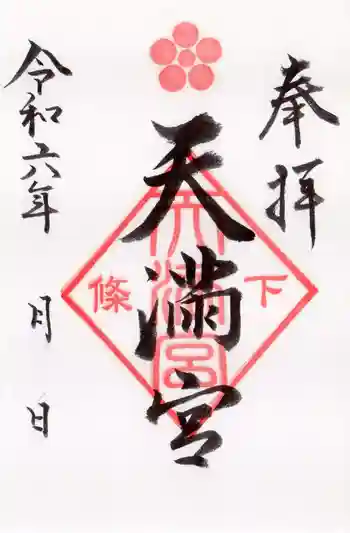 奉拝
天満宮
下條
天満宮
令和六年 月 日